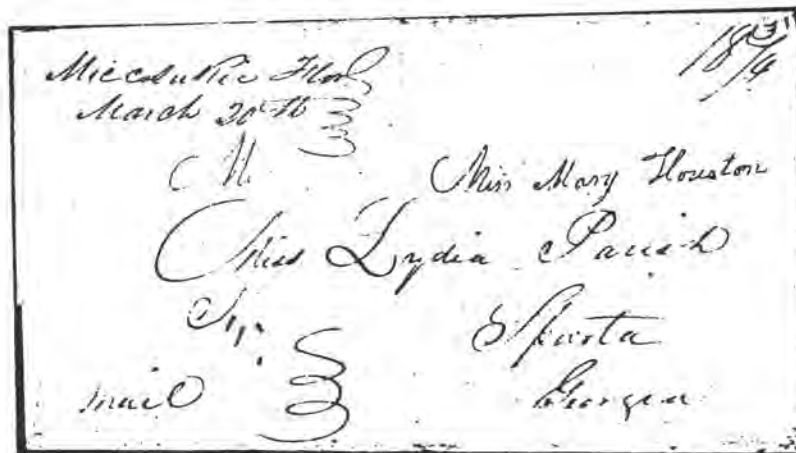 Miccosukie Flor
March 20th
18 3/4
M. Miss Mary Houston
Miss Lydia Parish
Sparta
mail Georgia